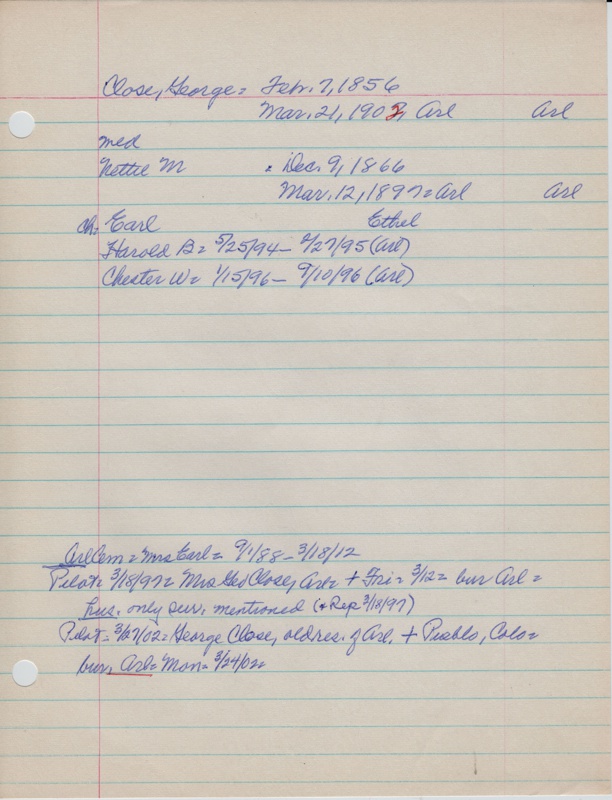 Close, George = Feb. 7, 1856
Mar. 21, 1902, Arl Arl
med
Nettie M = Dec. 9, 1866
Mar. 12, 1897 = Arl Arl
ch: Earl Ethel
Harold B = 5/25/94 - 2/27/95 (Arl)
Chester W = 1/15/96 - 9/10/96 (Arl)
Arl Cem = Mrs Earl = 9/1/88 - 3/18/12
Pilot = 3/18/97 = Mrs Geo Close, Arl = + Fri = 3/12 = bur Arl =
hus. only surv. mentioned (+ Rep 3/18/97)
Pilot = 3/27/02 = George Close, old res. of Arl. + Pueblo, Colo =
bur. Arl = Mon = 3/24/02